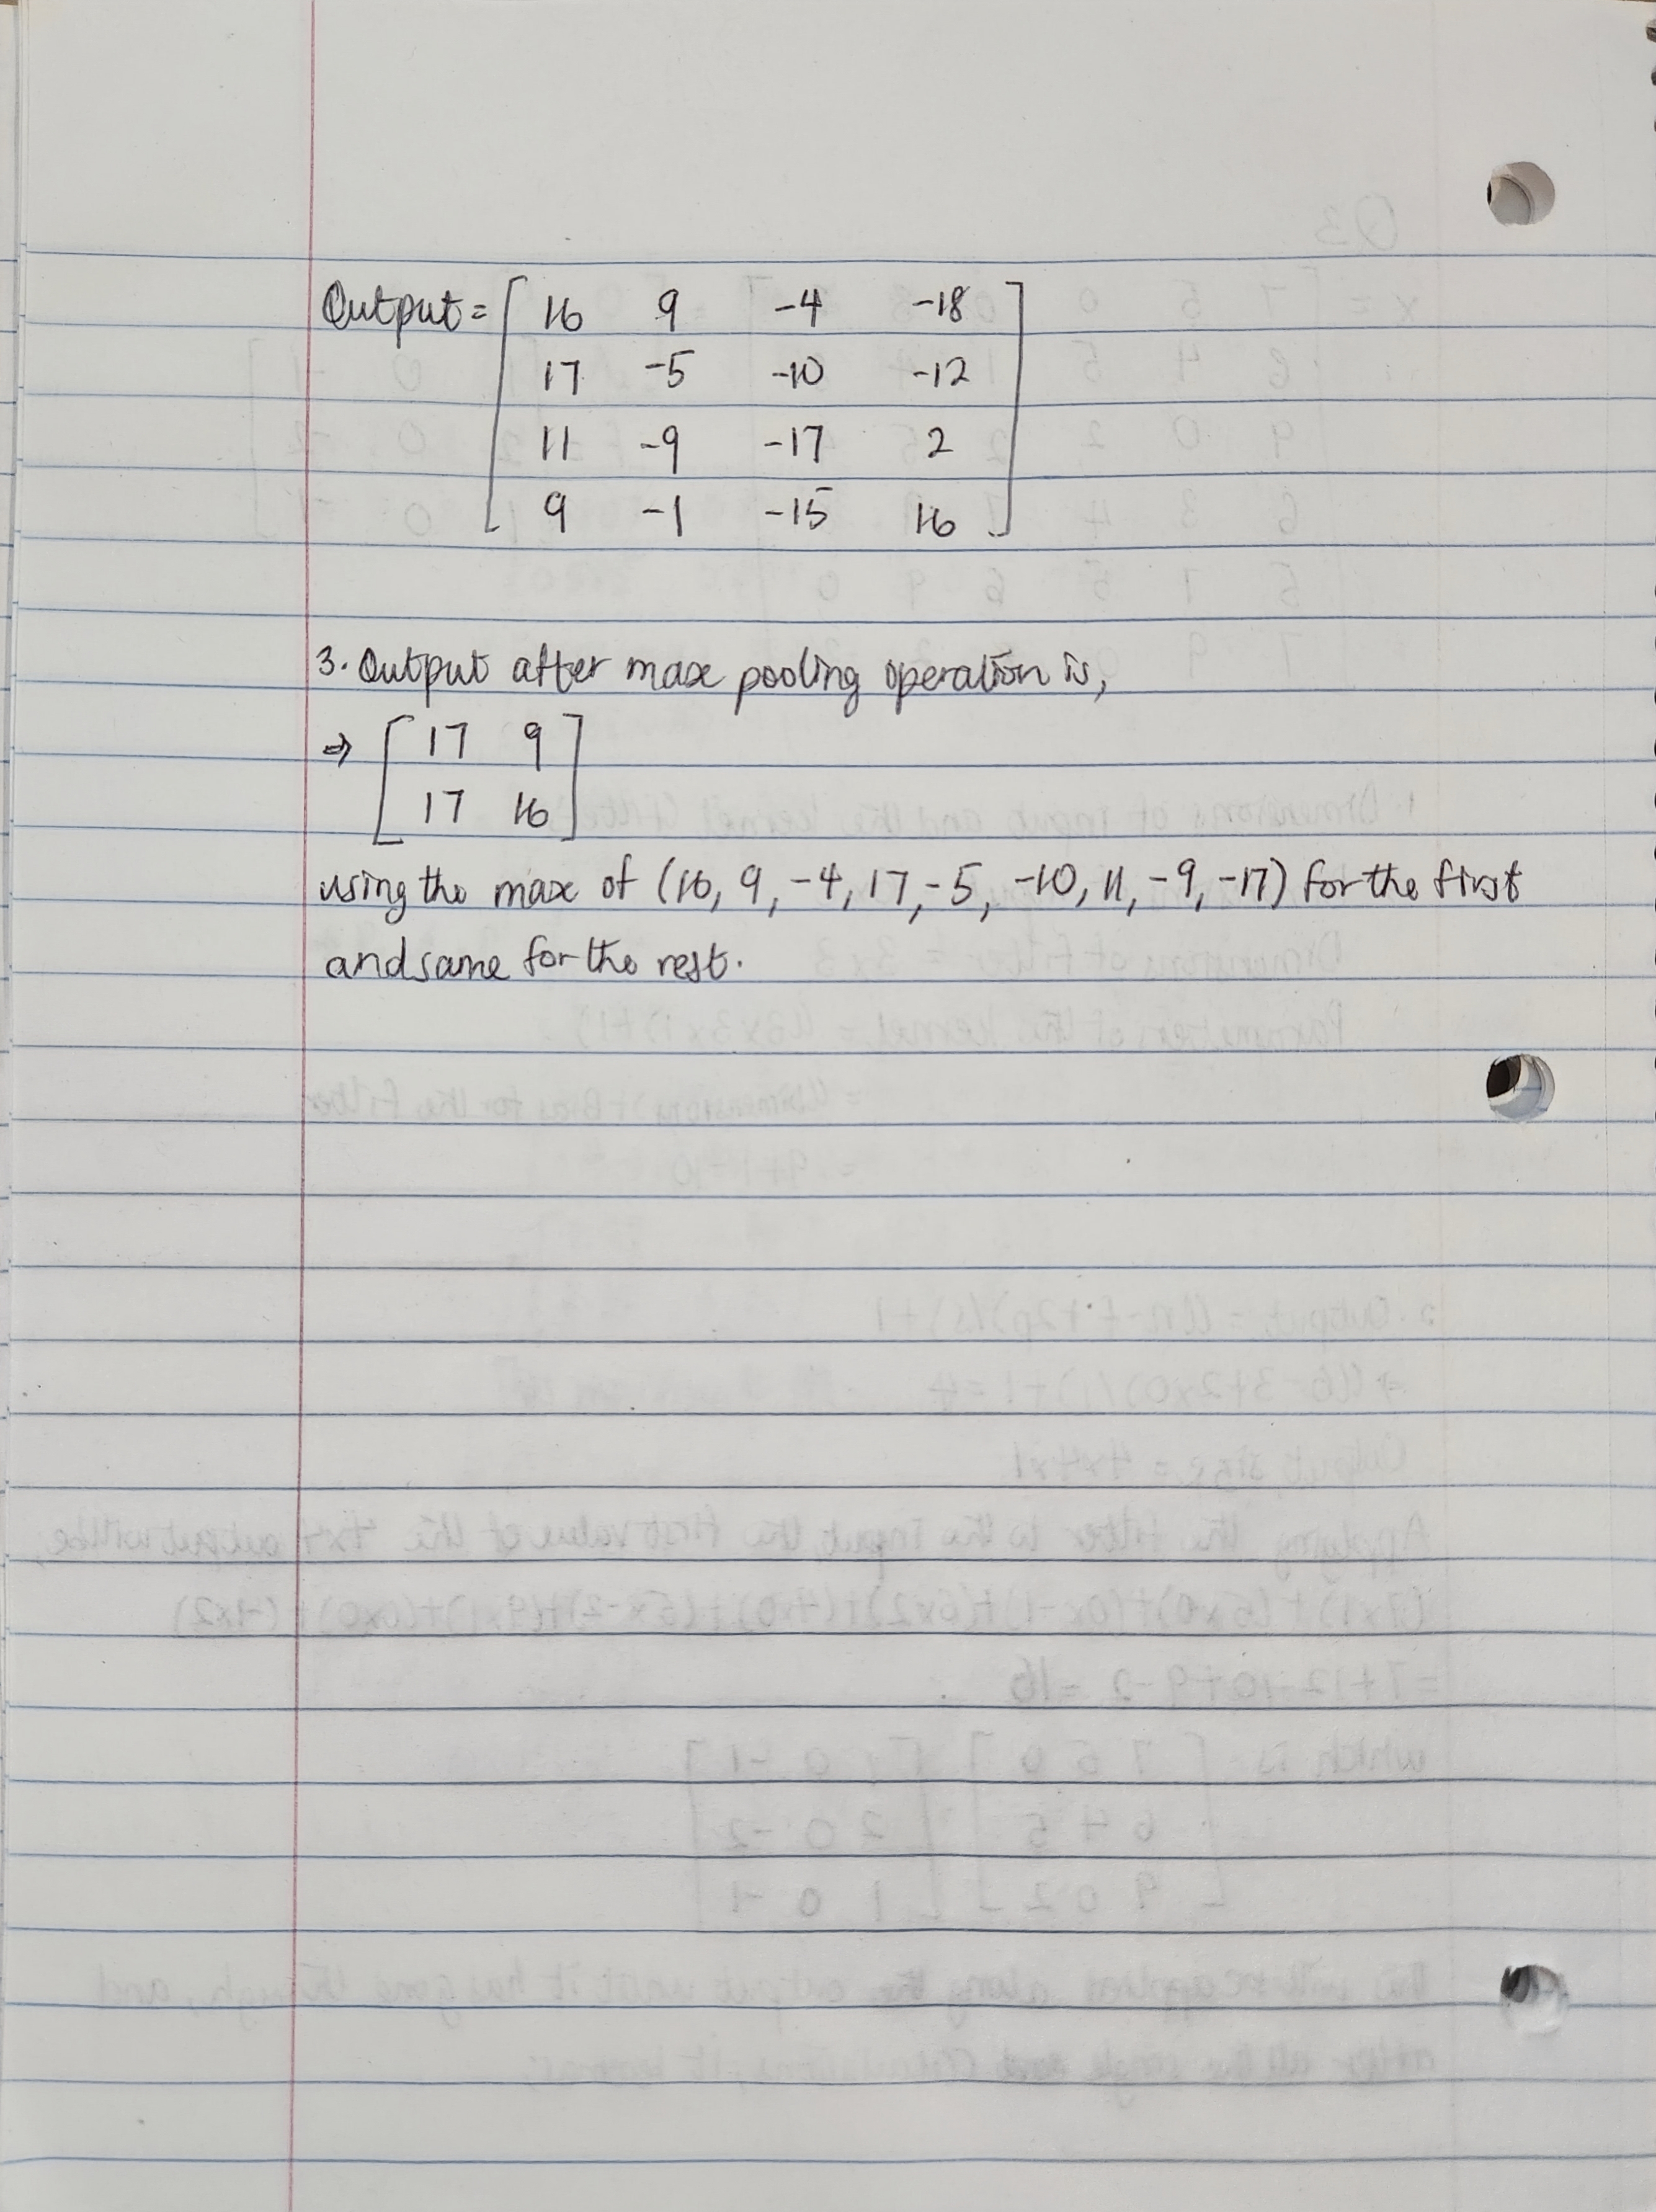 Output = [ 16 9 -4 -18
17 -5 -10 -12
11 -9 -17 2
9 -1 -15 16 ]
3. Output after max pooling operation is,
⇒ [ 17 9
17 16 ]
using the max of (16, 9, -4, 17, -5, -10, 11, -9, -17) for the first
and same for the rest.